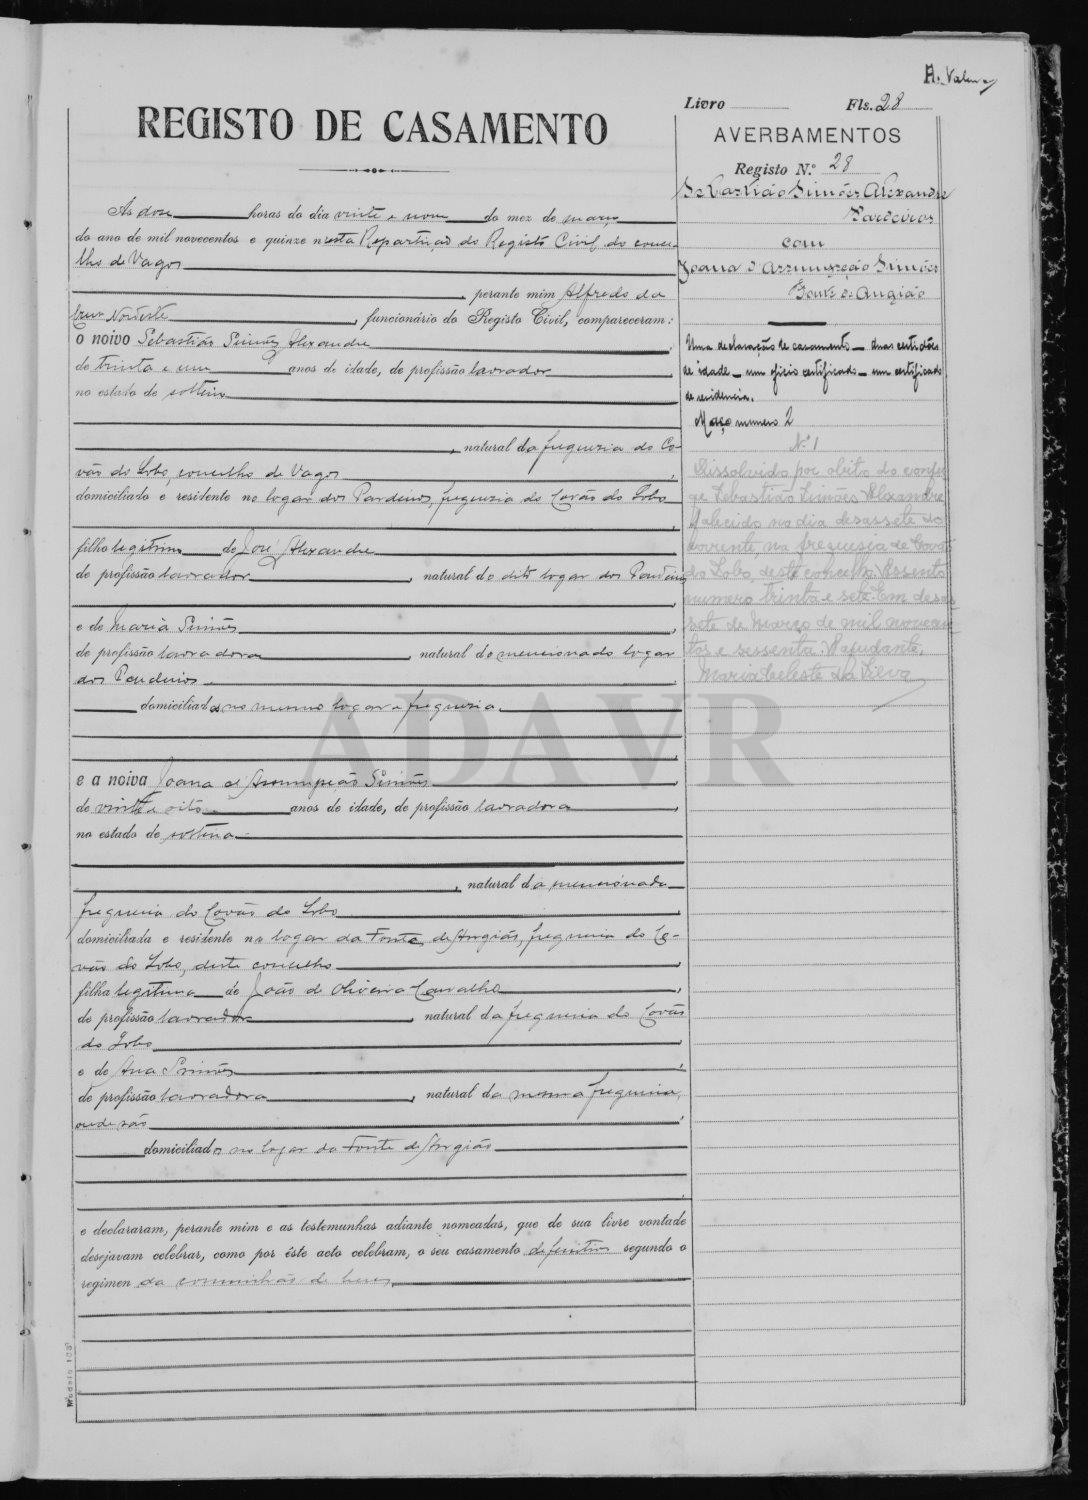 A. Valen
REGISTO DE CASAMENTO
Livro Fls. 28
AVERBAMENTOS
Registo N.º 28
Sebastião Simões Alexandre
Pardeiros
com
Joana d'Assumpção Simões
Fonte de Angião
Uma declaração de casamento — duas certidões
de idade — um oficio certificado — um certificado
de residencia.
Maço numero 2
N.º 1
Dissolvido por obito do conju-
ge Sebastião Simões Alexandre
falecido no dia desassete do
corrente, na freguesia de Covão
do Lobo, deste concelho. Assento
numero trinta e sete. Em desas-
sete de Março de mil novecen-
tos e sessenta. O ajudante,
Maria Celeste da Silva
As dose horas do dia vinte e nove do mez de março
do ano de mil novecentos e quinze nesta Repartição do Registo Civil do conce-
lho de Vagos
, perante mim Alfredo da
Cruz Nordeste, funcionário do Registo Civil, compareceram:
o noivo Sebastião Simões Alexandre,
de trinta e um anos de idade, de profissão lavrador,
no estado de solteiro
, natural da freguezia do Co-
vão do Lobo, concelho de Vagos,
domiciliado e residente no logar dos Pardeiros, freguezia do Covão do Lobo
,
filho legitimo de José Alexandre
de profissão lavrador, natural do dito logar dos Pardeiros
,
e de Maria Simões,
de profissão lavradora, natural do mencionado logar
dos Pardeiros,
domiciliados no mesmo logar e freguezia,
e a noiva Joana d'Assumpção Simões,
de vinte e oito anos de idade, de profissão lavradora,
no estado de solteira
, natural da mencionada
freguezia do Covão do Lobo,
domiciliada e residente no logar da Fonte de Angião, freguezia do Co-
vão do Lobo, deste concelho,
filha legitima de João d'Oliveira Carvalho,
de profissão lavrador, natural da freguezia do Covão
do Lobo,
e de Ana Simões,
de profissão lavradora, natural da mesma freguezia,
onde são,
domiciliados no logar da Fonte de Angião
,
e declararam, perante mim e as testemunhas adiante nomeadas, que de sua livre vontade
desejavam celebrar, como por êste acto celebram, o seu casamento definitivo segundo o
regimen da comunhão de bens,
Modelo 103
ADAVR